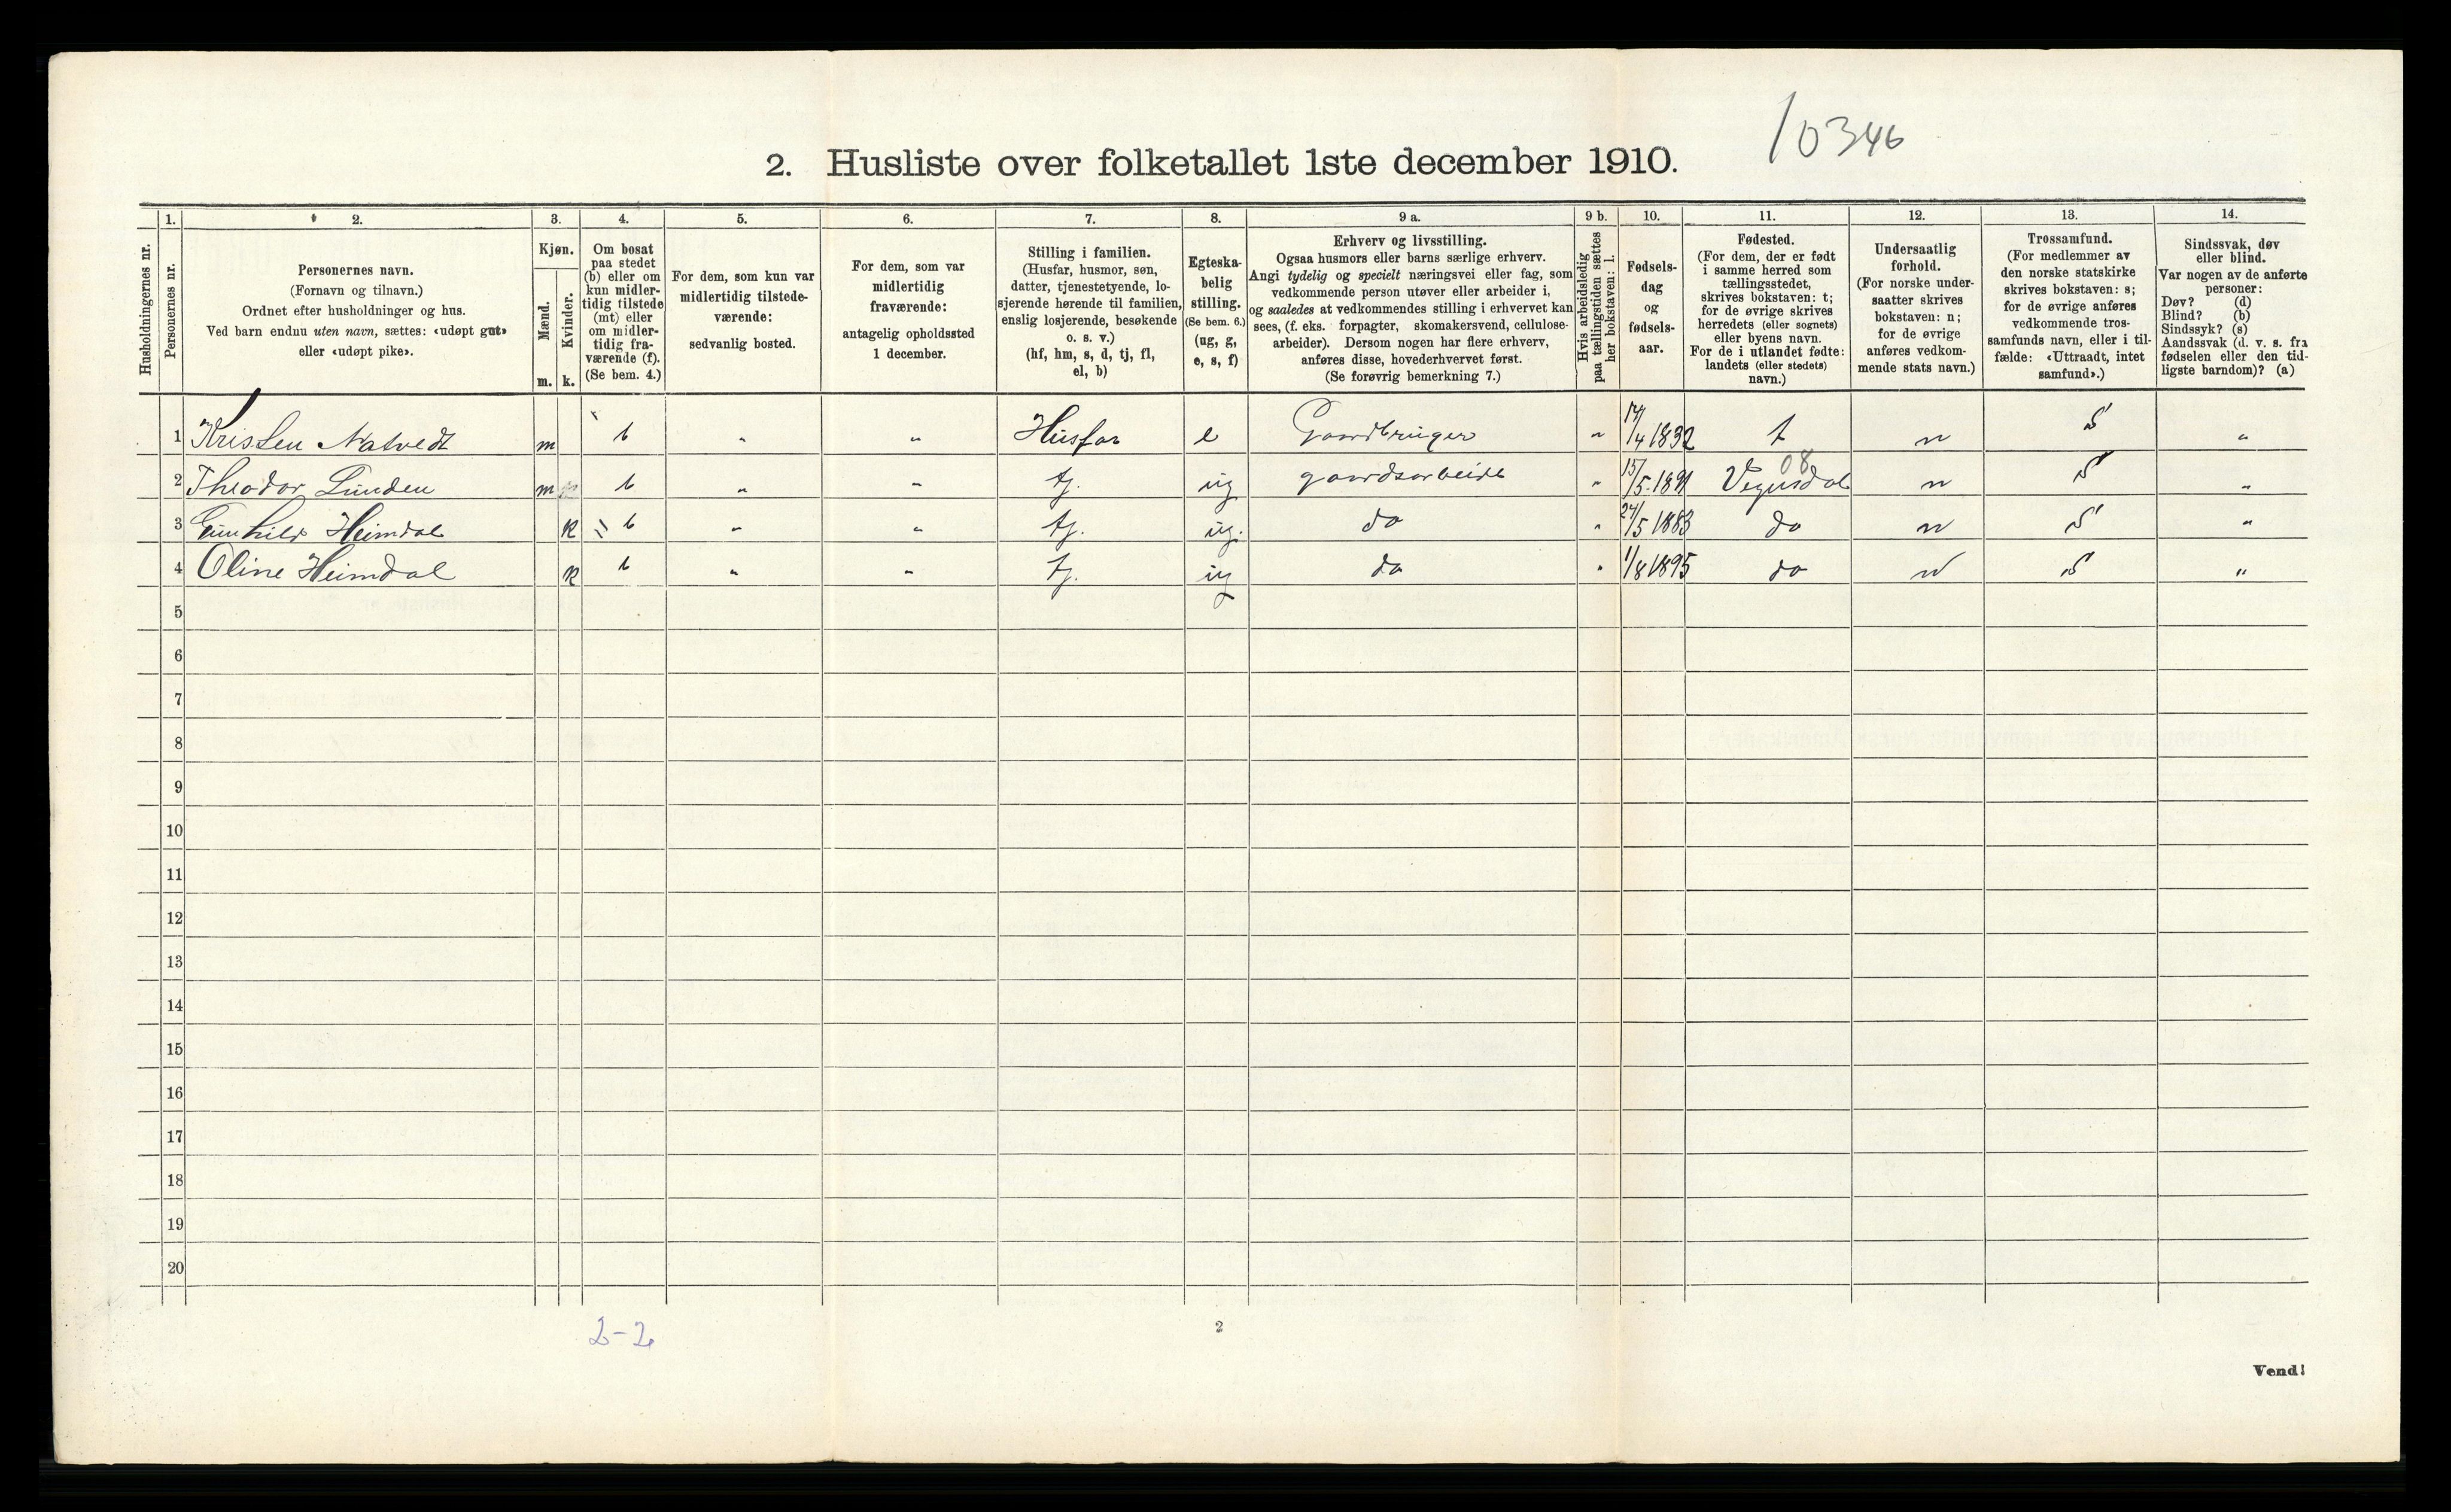 10346
2. Husliste over folketallet 1ste december 1910.
1. 2. 3. 4. 5. 6. 7. 8. 9 a. 9 b. 10. 11. 12. 13. 14.
Husholdningernes nr.
Personernes nr.
Personernes navn.
(Fornavn og tilnavn.)
Ordnet efter husholdninger og hus.
Ved barn endnu uten navn, sættes: «udøpt gut»
eller «udøpt pike».
Kjøn.
Mænd.
Kvinder.
m. k.
Om bosat
paa stedet
(b) eller om
kun midler-
tidig tilstede
(mt) eller
om midler-
tidig fra-
værende (f).
(Se bem. 4.)
For dem, som kun var
midlertidig tilstede-
værende:
sedvanlig bosted.
For dem, som var
midlertidig
fraværende:
antagelig opholdssted
1 december.
Stilling i familien.
(Husfar, husmor, søn,
datter, tjenestetyende, lo-
sjerende hørende til familien,
enslig losjerende, besøkende
o. s. v.)
(hf, hm, s, d, tj, fl,
el, b)
Egteska-
belig
stilling.
(Se bem. 6.)
(ug, g,
e, s, f)
Erhverv og livsstilling.
Ogsaa husmors eller barns særlige erhverv.
Angi tydelig og specielt næringsvei eller fag, som
vedkommende person utøver eller arbeider i,
og saaledes at vedkommendes stilling i erhvervet kan
sees, (f. eks. forpagter, skomakersvend, cellulose-
arbeider). Dersom nogen har flere erhverv,
anføres disse, hovederhvervet først.
(Se forøvrig bemerkning 7.)
Hvis arbeidsledig
paa tællingstiden sættes
her bokstaven: l.
Fødsels-
dag
og
fødsels-
aar.
Fødested.
(For dem, der er født
i samme herred som
tællingsstedet,
skrives bokstaven: t;
for de øvrige skrives
herredets (eller sognets)
eller byens navn.
For de i utlandet fødte:
landets (eller stedets)
navn.)
Undersaatlig
forhold.
(For norske under-
saatter skrives
bokstaven: n;
for de øvrige
anføres vedkom-
mende stats navn.)
Trossamfund.
(For medlemmer av
den norske statskirke
skrives bokstaven: s;
for de øvrige anføres
vedkommende tros-
samfunds navn, eller i til-
fælde: «Uttraadt, intet
samfund».)
Sindssvak, døv
eller blind.
Var nogen av de anførte
personer:
Døv? (d)
Blind? (b)
Sindssyk? (s)
Aandssvak (d. v. s. fra
fødselen eller den tid-
ligste barndom)? (a)
1 Kristen Natvedt m b " " Husfar e Gaardbruger " 14/4 1832 t n S "
08
2 Theodor Lunden m b " " tj. ug gaardsarbeide " 15/5-1891 Vegusdal n S "
3 Gunhild Heimdal k b " " tj. ug. do " 24/5 1883 do n S "
4 Oline Heimdal k b " " tj. ug do " 1/8 1895 do n S "
5
6
7
8
9
10
11
12
13
14
15
16
17
18
19
20
2-2
2
Vend!